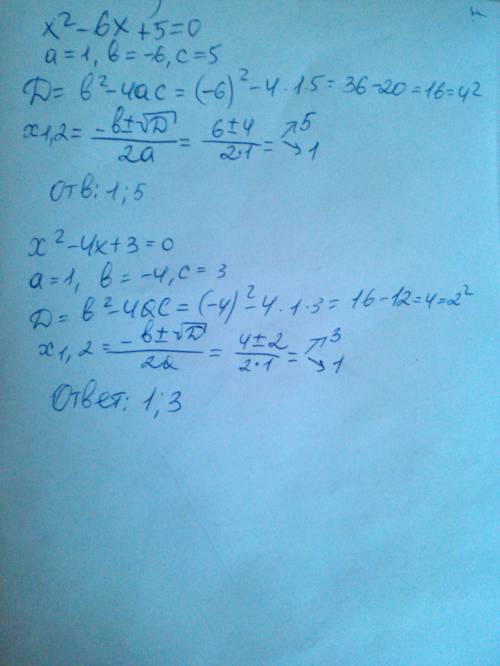 x² - 6x + 5 = 0
a = 1, в = -6, c = 5
Д = в² - 4ac = (-6)² - 4 · 1 · 5 = 36 - 20 = 16 = 4²
x1,2 = (-в ± √Д) / 2a = (6 ± 4) / 2·1 = ↗ 5 ↘ 1
Отв: 1; 5
x² - 4x + 3 = 0
a = 1, в = -4, c = 3
Д = в² - 4ac = (-4)² - 4 · 1 · 3 = 16 - 12 = 4 = 2²
x1,2 = (-в ± √Д) / 2a = (4 ± 2) / 2·1 = ↗ 3 ↘ 1
Ответ: 1; 3